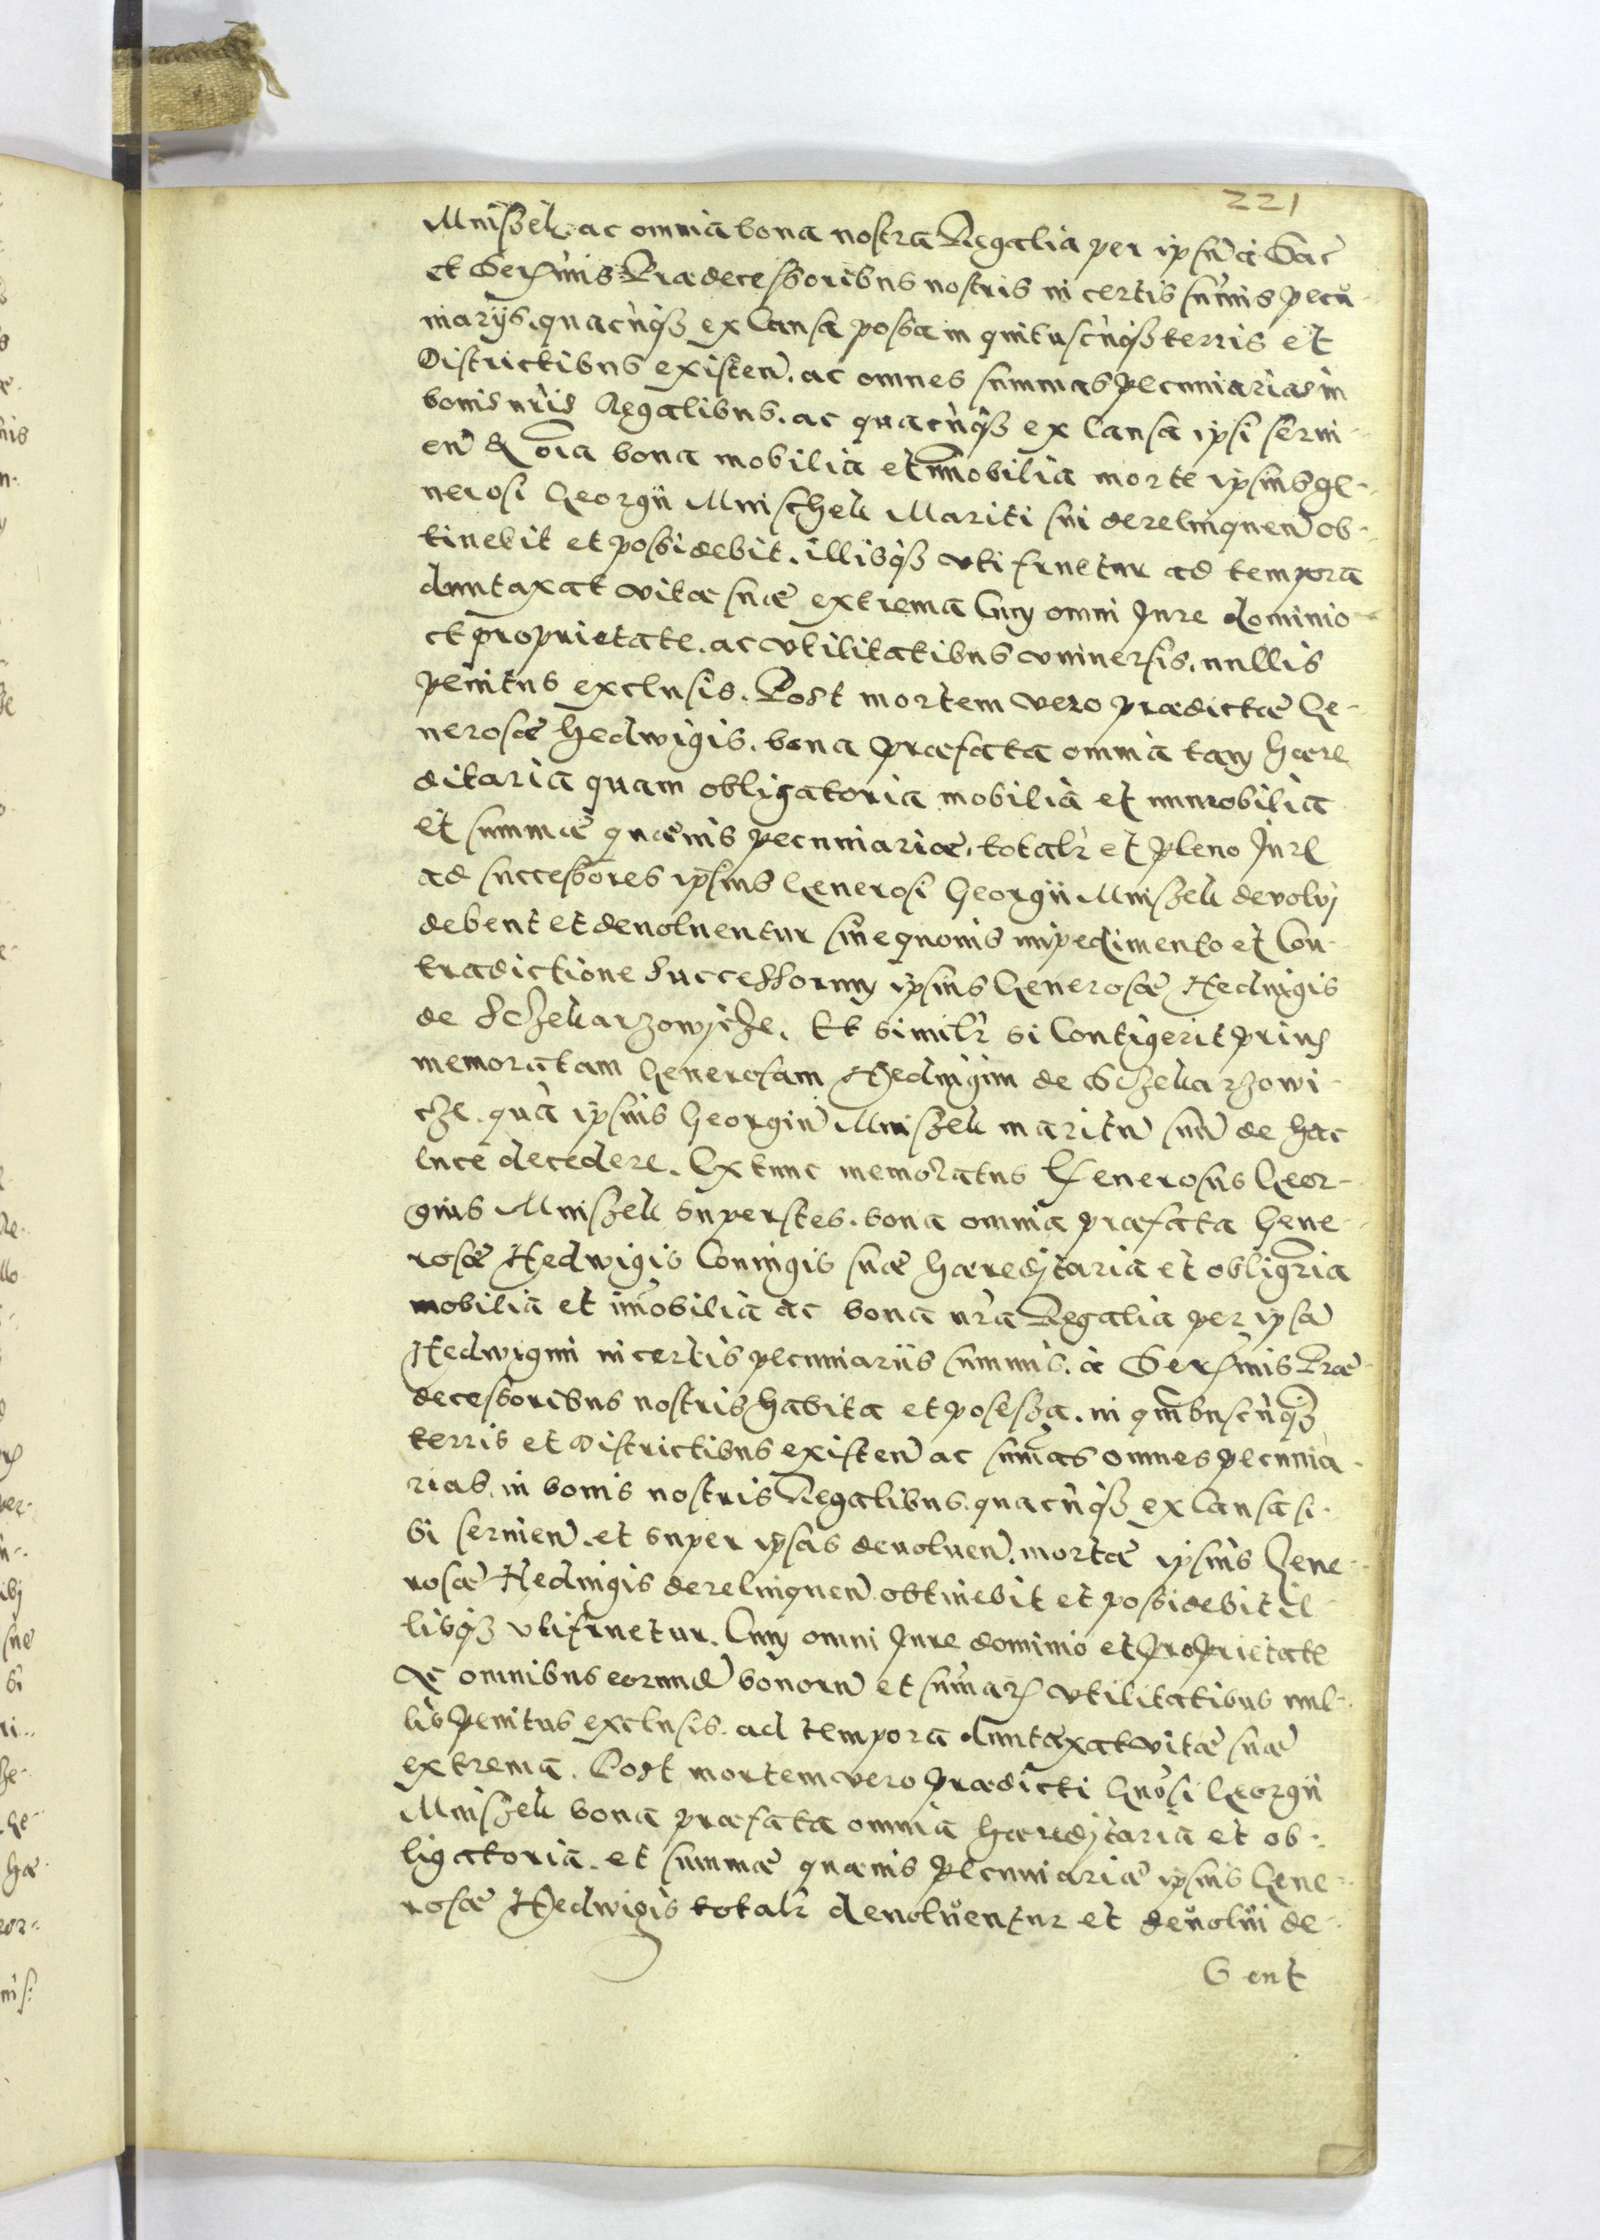 221
Mniszek. ac omnia bona nostra Regalia per ipsũ à Sac̃
et Serẽmis Prædecessoribus nostris in certis sum̃is pecu-
niarijs. quacũq3 ex Causa possa in quibuscũq3 terris et
Districtibus existeñ. ac omnes summas pecuniarias in
bonis nr̃is Regalibus. ac quacũq3 ex Causa ipsi servi-
eñ & oĩa bona mobilia et im̃obilia morte ipsius ge-
nerosi Georgii Mnischek Mariti sui derelinqueñ ob-
tinebit et possidebit. illisq3 uti fruetur ad tempora
duntaxat vitæ suæ extrema Cum omni Jure dominio
et proprietate. ac utilitatibus universis. nullis
penitus exclusis. Post mortem vero prædictæ Ge-
nerosæ Hedwigis. bona præfata omnia tam hære
ditaria quam obligatoria mobilia et immobilia
et summæ quævis pecuniariæ. totalr̃ et pleno Jure
ad successores ipsius Generosi Georgii Mniszek devolvj
debent et devolventur sine quovis impedimento et Con-
tradictione Successorum ipsius Generosæ Hedvigis
de Sczekarzowicze. Et similr̃ si Contigerit prius
memoratam Generosam Hedvigim de Sczekarzowi-
cze. quã ipsius Georgiũ Mniszek maritũ suũ de hac
luce decedere. Extunc memoratus Generosus Geor-
gius Mniszek superstes. bona omnia præfata Gene-
rosæ Hedwigis Coniugis suæ hæreditaria et obligr̃ia
mobilia et im̃obilia ac bona nr̃a Regalia per ipsã
Hedwigim in certis pecuniariis summis. à Serẽmis Præ-
decessoribus nostris habita et posessa. in quibuscũq3
terris et Districtibus existeñ ac sum̃as omnes pecunia-
rias. in bonis nostris Regalibus. quacũq3 ex Causa si-
bi servieñ. et super ipsas devolveñ. mortæ ipsius Gene-
rosæ Hedvigis derelinqueñ obtinebit et possidebit il-
lisq3 utifruetur. Cum omni Jure dominio et proprietate
Ac omnibus eorundẽ bonorũ et sum̃arũ utilitatibus nul-
lis penitus exclusis. ad tempora duntaxat vitæ suæ
extrema. Post mortem vero prædicti Gnõsi Georgii
Mniszek bona præfata omnia hæreditaria et ob-
ligatoria. et summæ quævis pecuniariæ ipsius Gene-
rosæ Hedwigis totalr̃ devolventur et devolvi de-
bent